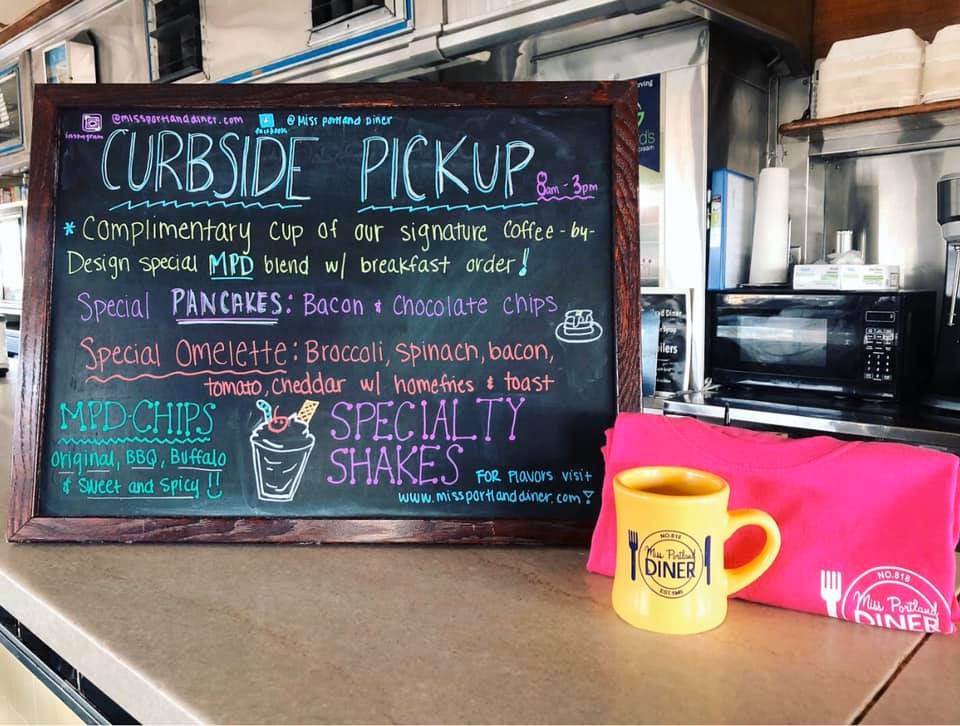 @missportlanddiner.com @ Miss portland Diner
instagram facebook
CURBSIDE PICKUP 8am - 3pm
* Complimentary cup of our signature Coffee-by-
Design special MPD blend w/ breakfast order!
Special PANCAKES: Bacon & Chocolate chips
Special Omelette: Broccoli, spinach, bacon,
tomato, cheddar w/ homefries & toast
MPD-CHIPS
original, BBQ, Buffalo
& Sweet and Spicy !!
SPECIALTY
SHAKES FOR Flavors visit
www.missportlanddiner.com!
NO.818
Miss Portland
DINER
EST.1949
NO.818
Miss Portland
DINER